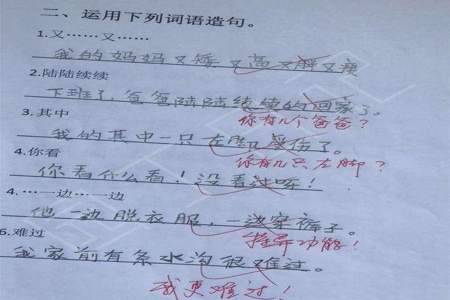 二、运用下列词语造句。
1.又……又……
我的妈妈又矮又高又胖又瘦
2.陆陆续续
下班了,爸爸陆陆续续的回家了。
你有几个爸爸?
3.其中
我的其中一只左脚受伤了。
你有几只左脚?
4.你看
你看什么看!没看过呀!
4.…一边……一边
他一边脱衣服,一边穿裤子。
特异功能!
5.难过
我家前有条水沟很难过。
我更难过!